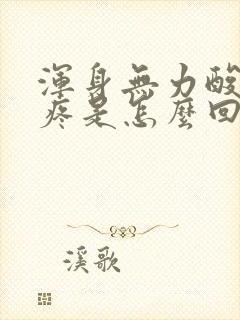 渾身無力酸
疼是怎麼回
溪歌